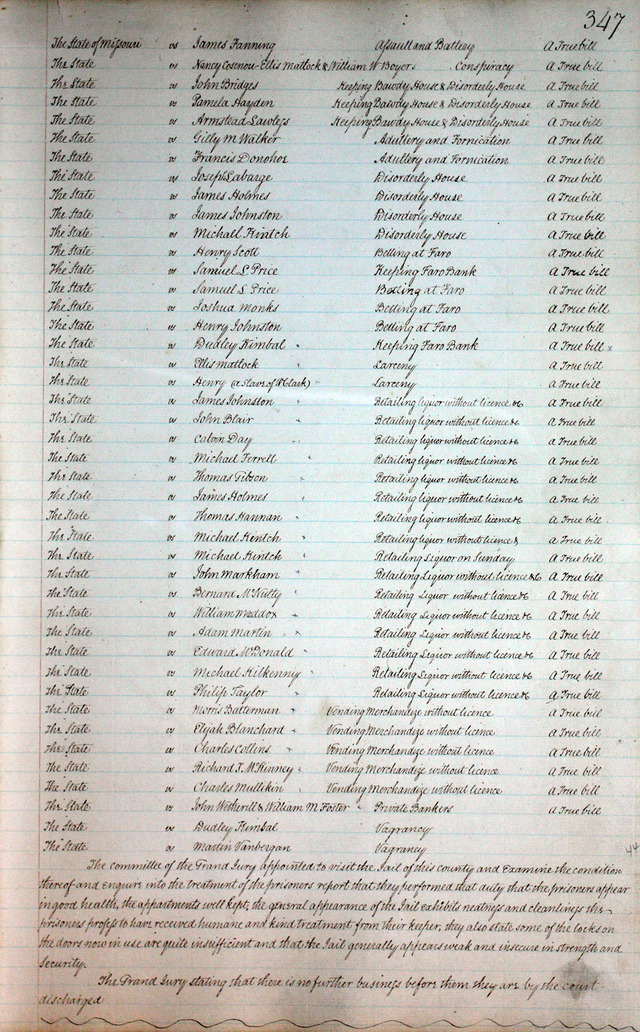 347
The State of Missouri vs James Fanning Assault and Battery A True bill
The State vs Nancy Cosenou Ellis Matlock & William W Boyers Conspiracy A True bill
The State vs John Bridges Keeping Bawdy House & Disorderly House A True bill
The State vs Pamela Hayden Keeping Bawdy House & Disorderly House A True bill
The State vs Armstead Lawless Keeping Bawdy House & Disorderly House A True bill
The State vs Gilly M Walker Adultery and Fornication A True bill
The State vs Francis Donohoe Adultery and Fornication A True bill
The State vs Joseph Labarge Disorderly House A True bill
The State vs James Holmes Disorderly House A True bill
The State vs James Johnston Disorderly House A True bill
The State vs Michall Kintch Disorderly House A True bill
The State vs Henry Scott Betting at Faro A True bill
The State vs Samuel S. Price Keeping Faro Bank A True bill
The State vs Samuel S Price Betting at Faro A True bill
The State vs Joshua Monks Betting at Faro A True bill
The State vs Henry Johnston Betting at Faro A True bill
The State vs Dudley Kimbal Keeping Faro Bank A True bill
The State vs Ellis Matlock Larceny A True bill
The State vs Henry (a Slave of W Clark) Larceny A True bill
The State vs James Johnston Retailing liquor without licence &c A True bill
The State vs John Blair Retailing liquor without licence &c A True bill
The State vs Calvin Day Retailing liquor without licence &c A True bill
The State vs Michael Terrell Retailing liquor without licence &c A True bill
The State vs Thomas Gibson Retailing liquor without licence &c A True bill
The State vs James Holmes Retailing liquor without licence &c A True bill
The State vs Thomas Hannan Retailing liquor without licence &c A True bill
The State vs Michael Kintch Retailing liquor without licence & A True bill
The State vs Michael Kintch Retailing Liquor on Sunday A True bill
The State vs John Markham Retailing Liquor without licence &c A True bill
The State vs Bernard McNulty Retailing Liquor without licence &c A True bill
The State vs William Maddox Retailing Liquor without licence &c A True bill
The State vs Adam Martin Retailing Liquor without licence &c A True bill
The State vs Edward McDonald Retailing Liquor without licence &c A True bill
The State vs Michael Kilkenny Retailing Liquor without licence &c A True bill
The State vs Philip Taylor Retailing Liquor without licence &c A True bill
The State vs Morris Batterman Vending Merchandize without licence A True bill
The State vs Elijah Blanchard Vending Merchandize without licence A True bill
The State vs Charles Collins Vending Merchandize without licence A True bill
The State vs Richard J. McKinney Vending Merchandize without licence A True bill
The State vs Charles Mullikin Vending Merchandize without licence A True bill
The State vs John Wetherill & William M Foster Private Bankers A True bill
The State vs Dudley Kimbal Vagrancy
The State vs Martin Vanbergan Vagrancy
The committee of the Grand Jury appointed to visit the Jail of this county and Examine the condition
thereof and enquire into the treatment of the prisoners report that they performed that duty that the prisoners appear
in good health, the appartments well kept, the general appearance of the Jail exhibits neatness and cleanliness the
prisoners profess to have received humane and kind treatment from their keeper, they also state some of the locks on
the doors now in use are quite insufficient and that the Jail generally appears weak and insecure in strength and
Security.
The Grand Jury stating that there is no further business before them they are by the court
discharged